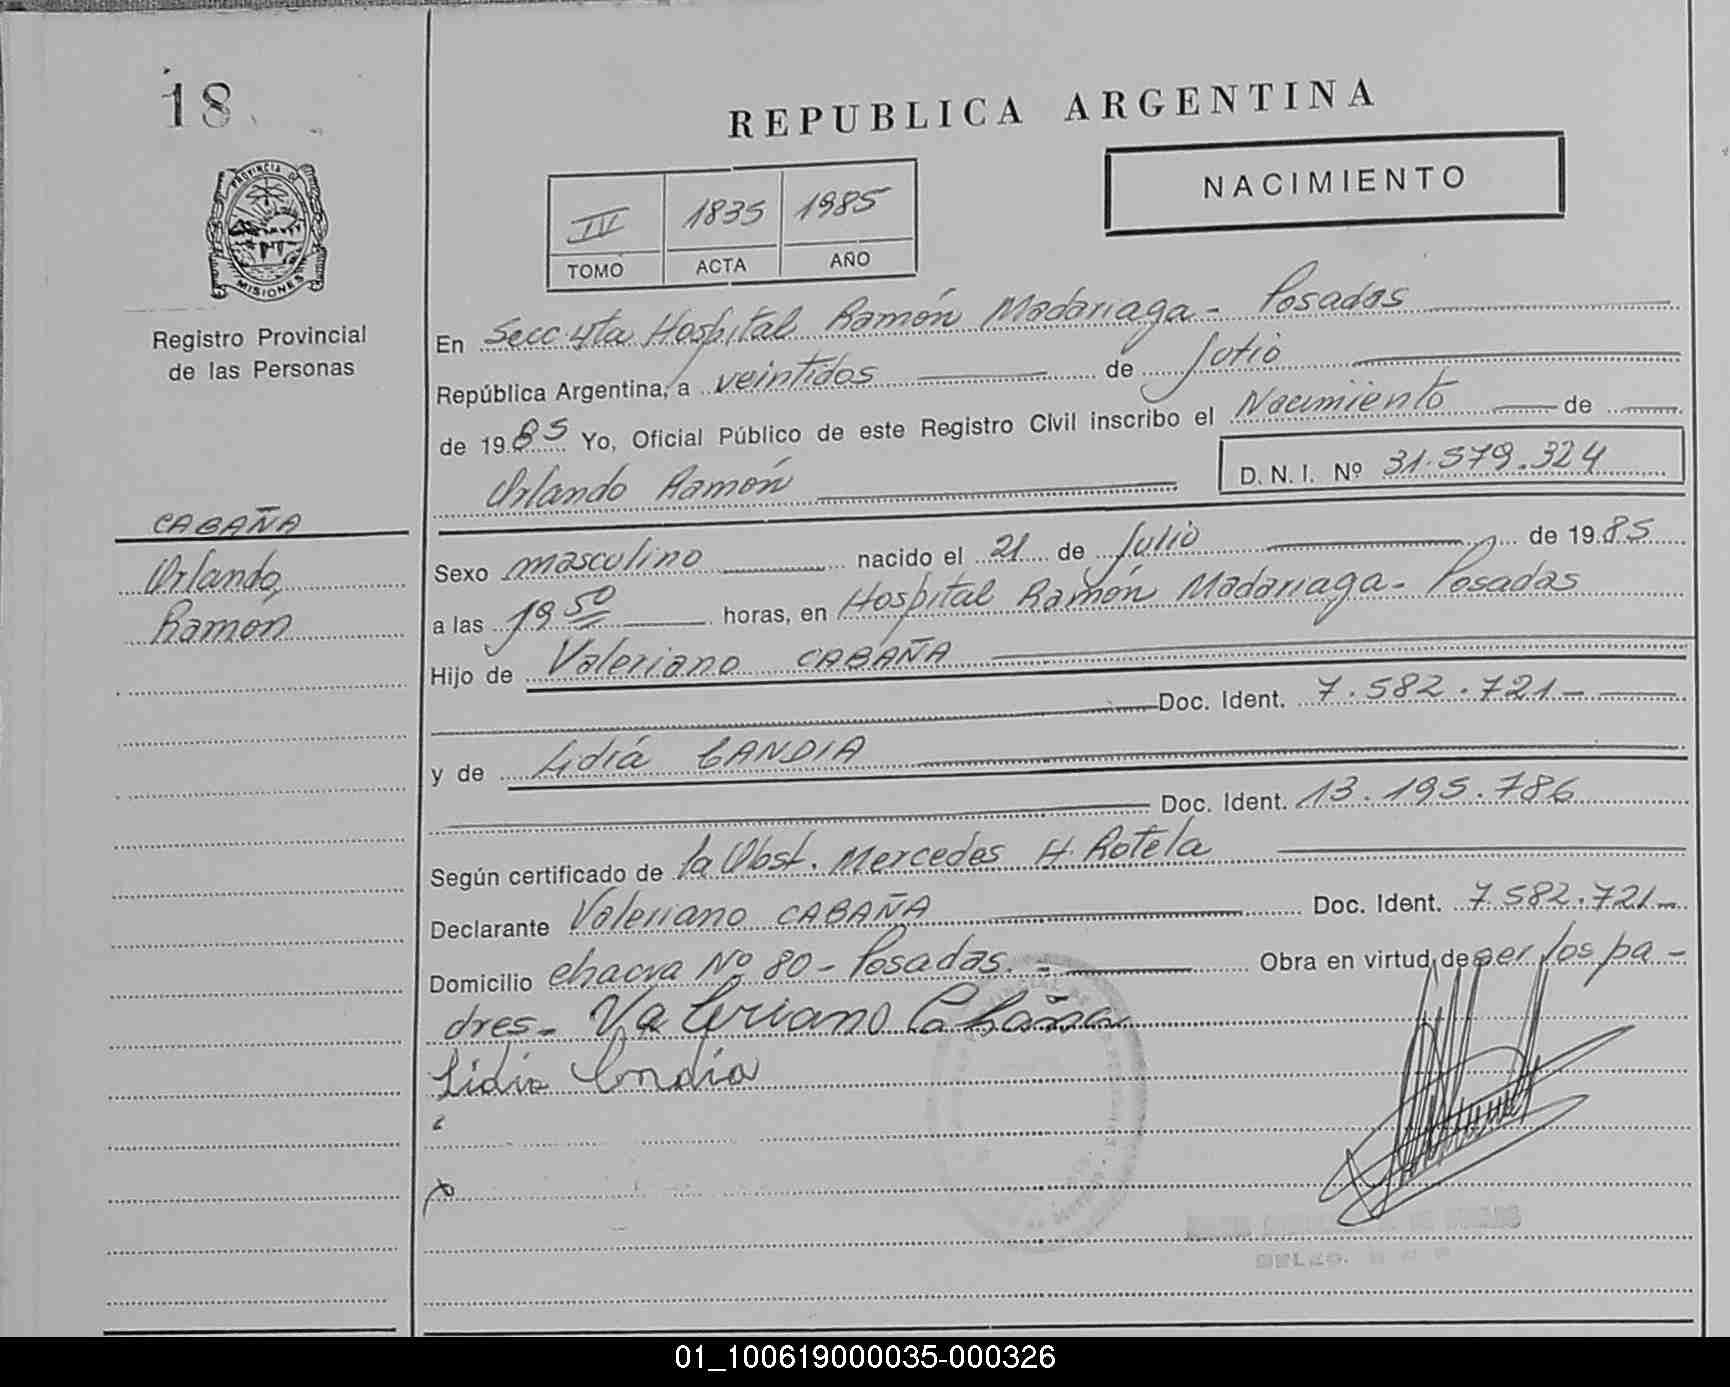 18
PROVINCIA DE
MISIONES
Registro Provincial
de las Personas
CABAÑA
Orlando
Ramón
REPUBLICA ARGENTINA
NACIMIENTO
IV 1835 1985
TOMO ACTA AÑO
En Secc 4ta Hospital Ramón Madariaga - Posadas
República Argentina, a veintidos de Julio
de 1985 Yo, Oficial Público de este Registro Civil inscribo el Nacimiento de
Orlando Ramón D.N.I. Nº 31.579.324
Sexo masculino nacido el 21 de Julio de 1985
a las 19 50 horas, en Hospital Ramón Madariaga - Posadas
Hijo de Valeriano CABAÑA
Doc. Ident. 7.582.721 -
y de Lidia CANDIA
Doc. Ident. 13.195.786
Según certificado de la Obst. Mercedes H. Rotela
Declarante Valeriano CABAÑA Doc. Ident. 7.582.721 -
Domicilio chacra Nº 80 - Posadas. - Obra en virtud de ser los pa -
dres - Valeriano Cabaña
Lidia Candia
01_100619000035-000326